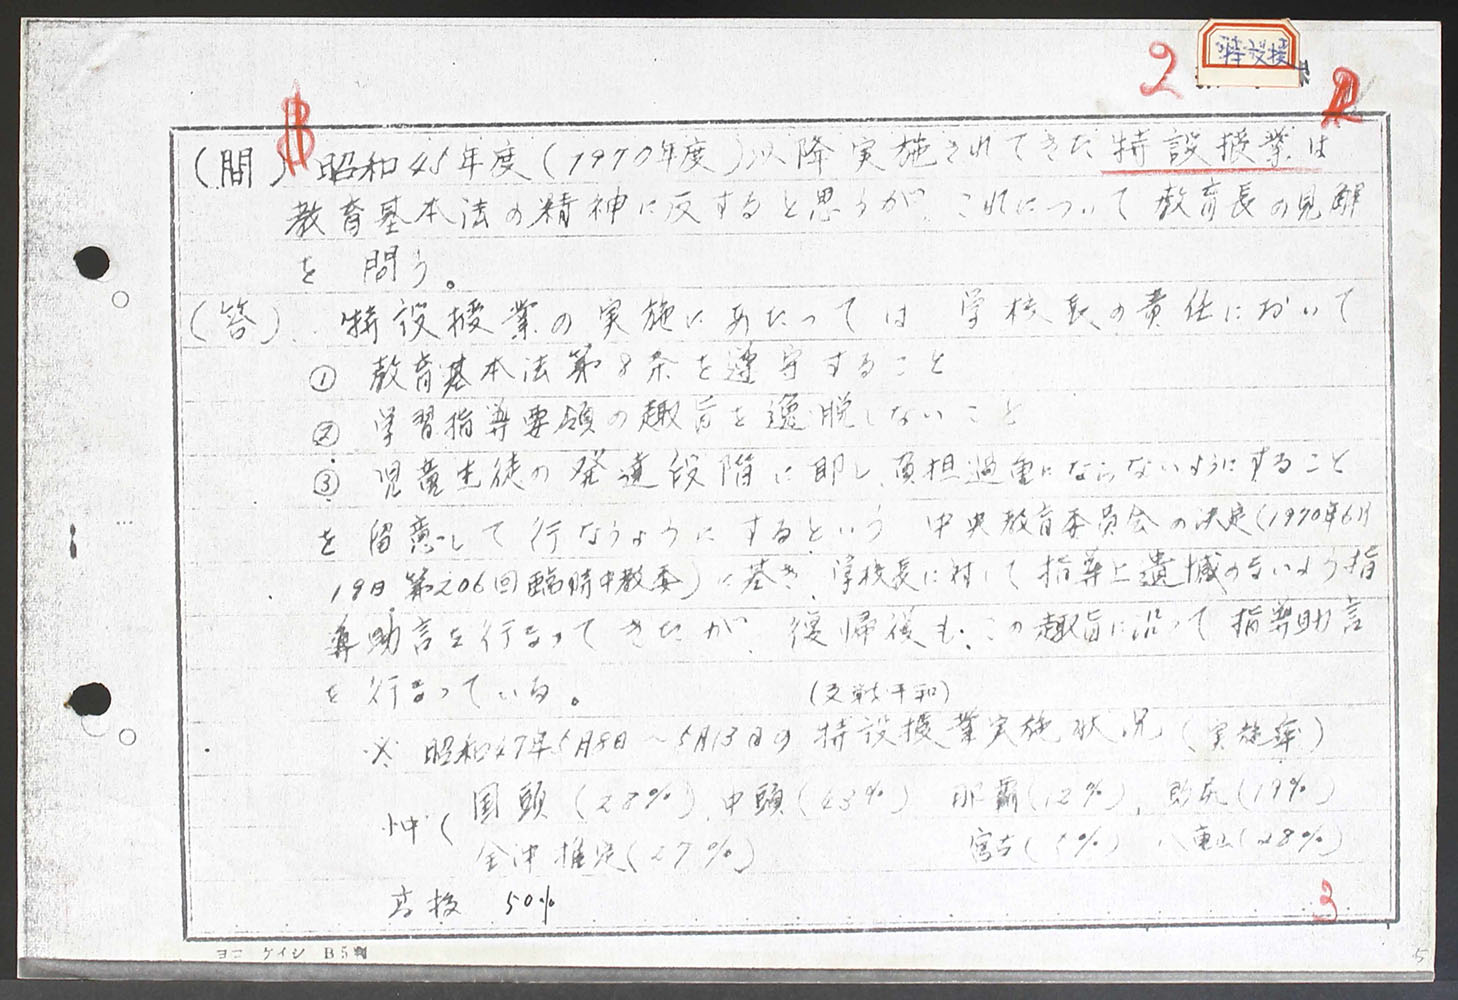 特設授
2
(問) 昭和45年度(1970年度)以降実施されてきた特設授業は
教育基本法の精神に反すると思うが、これについて教育長の見解
を問う。
(答) 特設授業の実施にあたっては 学校長の責任において
① 教育基本法第8条を遵守すること
② 学習指導要領の趣旨を逸脱しないこと
③ 児童生徒の発達段階に即し、負担過重にならないようにすること
を留意して行なうようにするという 中央教育委員会の決定(1970年6月
19日 第206回臨時中教委)に基き、学校長に対して指導上遺憾のないよう指
導助言を行なってきたが、復帰後も、この趣旨に沿って指導助言
を行なっている。
(反戦平和)
※ 昭和47年5月8日〜5月13日の特設授業実施状況(実施率)
国頭(28%)、中頭(43%) 那覇(12%)、島尻(19%)
小中(
全沖推定(27%) 宮古(5%) 八重山(28%)
高校 50%
3
ヨコ ケイシ B5判
5